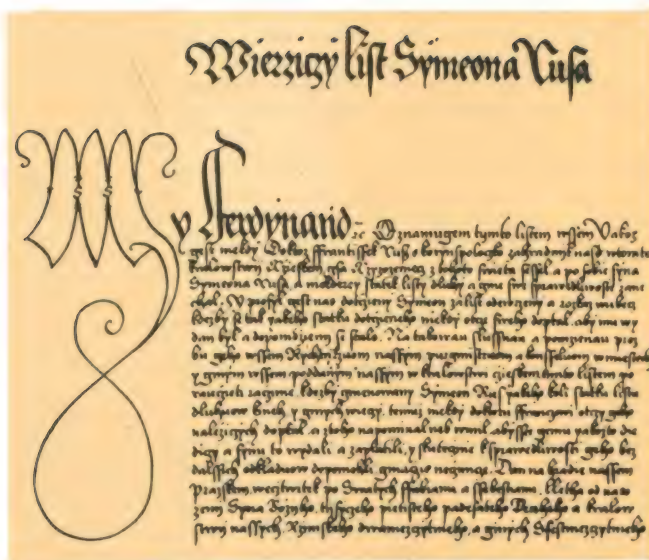 Wierziczy list Symeona Rusa
My Ferdynand ꝛc Oznamugem tymto listem wssem Jakoz
gest niekdy Doktor Frantissek Rus
kralowstwi z tohoto swieta ssel a po sobie syna
Symeona Rusa a niektery statek listy dluhy a gine swe sprawedliwosti zane
chal. Y prosyl gest nas dotczeny Symeon za list otewrzeny a rozkaz
kdezby se tak yakeho statku dotczeneho niekdy otcze sweho doptal, aby mu wy
dan byl a dopomozeni se stalo. Na takowau slussnau a ponizenau proz
bu geho wssem nassym purgmistruom a konsseluom w miestech
y ginym wssem poddanym nassym w kralowstwi czieskem tymto listem po
rauczeti raczime, kdezby gmenowany Symeon Rus yakeho koli statku listu
dluhuow knieh y ginych wieczy, temuz niekdy doktoru otczy geho
nalezegiczych doptal, a z toho napominal neb  abysste gemu yakozto die
diczy a synu to wydali a zaplatili, y skuteczne k sprawedlnosti geho bez
dalssich odkladuow dopomohli, ginacze neczinicze. Dan na hradie nassem
Prazskem, we cztwrtek po Swatych Fabiana a Ssebestiana. Letha od naro
zeni Syna Bozyho, tisyczeho pietisteho padesateho Druheho a kralow
stwi nassych Rzymskeho dwamezcytmeho, a ginych Ssestmezcytmeho